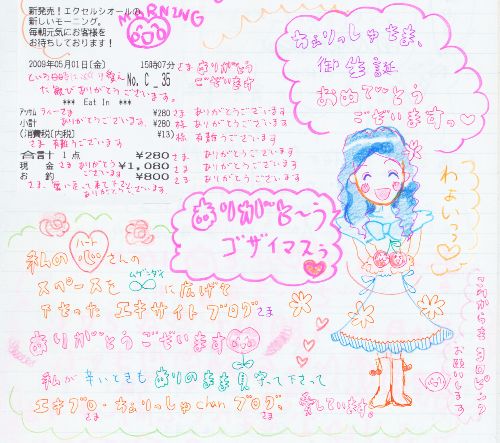 新発売！エクセルシオールの
新しいモーニング。
毎朝元気にお客様を
お待ちしております！
MORNING
2009年05月01日(金) 15時07分 さま ありがとう
No. C_35 ございます
ありがとうございます。
*** Eat In ***
ラベーさま ¥280 さま ありがとうございます
小計 ありがとうございます ¥280 様 ありがとうございます
(消費税(内税) ¥13) 様 有難うございます
さま 有難うございます
合言十 1点 ¥280 さま ありがとうございます
現金 さま ありがとう ございます ¥1,080 さま ありがとうございます
お釣 ¥800 さま ありがとうございます
ありがとうございます
ちぇりっしゅさま、
御生誕
おめでとう
ございますっ♡
わよいっっ♡
ありがと〜う
ゴザイマスぅ
私の ハート 心 さんの
スペースを ムゲンダイ ∞ に広げて
下さった エキサイトブログさま
ありがとうございます
私が辛いときも ありのまま見守って下さって
エキブロ・ちぇりっしゅchanブログ、さま
愛しています。
これからもヨロピンク
お願いします